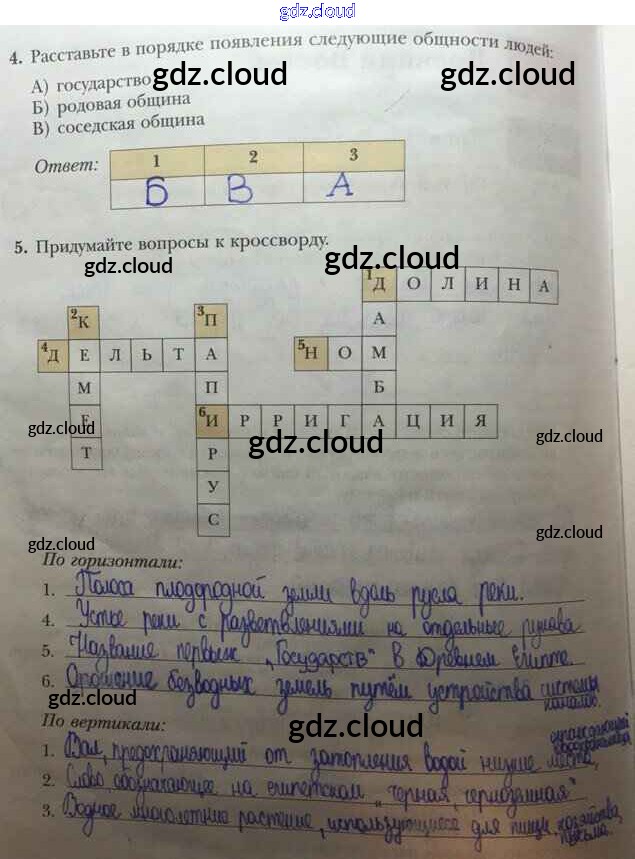 gdz.cloud
4. Расставьте в порядке появления следующие общности людей:
А) государство
gdz.cloud gdz.cloud
Б) родовая община
В) соседская община
Ответ: 1 2 3
Б В А
5. Придумайте вопросы к кроссворду.
gdz.cloud gdz.cloud
1Д О Л И Н А
2К 3П А
4Д Е Л Ь Т А А 5Н О М
М П Б
Е 6И Р Р И Г А Ц И Я
gdz.cloud gdz.cloud gdz.cloud
Т Р
У
С
gdz.cloud gdz.cloud
По горизонтали:
1. Полоса плодородной земли вдоль русла реки.
4. Устье реки с разветвлениями на отдельные рукава
5. Название первых „Государств" в Древнем Египте
6. Орошение безводных земель путём устройства системы каналов.
gdz.cloud
По вертикали:
gdz.cloud
1. Вал, предохраняющий от затопления водой низкие места,
2. Слово, обозначающее на египетском „черная,
3. Водное многолетнее растение, использующиеся для пищи, хозяйства, письма.
gdz.cloud gdz.cloud